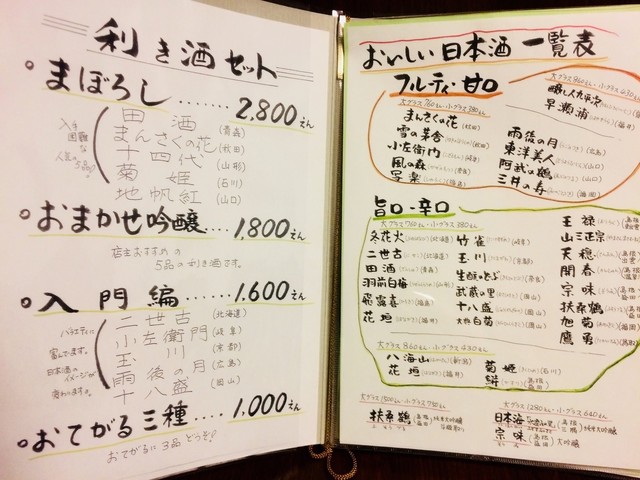 利き酒セット
まぼろし……2,800えん
入手
困難な
人気の
5品!
田酒 (青森)
まんさくの花 (秋田)
十四代 (山形)
菊姫 (石川)
地帆紅 (山口)
おまかせ吟醸……1,800えん
店主おすすめの
5品の利き酒です。
入門編……1,600えん
バラエティに
富んでます。
日本酒の
イメージが
変わります。
二世古 (北海道)
小左衛門 (岐阜)
玉川 (京都)
雨後の月 (広島)
十八盛 (岡山)
おてがる三種……1,000えん
おてがるに3品どうぞ!
おいしい日本酒一覧表
フルーティ・甘口
大グラス760えん・小グラス380えん
まんさくの花 (秋田)
雪の茅舎 (秋田)
小左衛門 (岐阜)
風の森 (奈良)
写楽 (福島)
大グラス860えん・小グラス430えん
醸し人九平次
早瀬浦 (福井)
雨後の月 (広島)
東洋美人 (山口)
阿武の鶴 (山口)
三井の寿 (福岡)
旨口・辛口
大グラス760えん・小グラス380えん
冬花火 (北海道)
二世古 (北海道)
田酒 (青森)
羽前白梅 (山形)
飛露喜 (福島)
花垣 (福井)
竹雀 (岐阜)
玉川 (京都)
生酛のどぶ (奈良)
武蔵の里 (岡山)
十八盛 (岡山)
大典白菊 (岡山)
王禄
山三正宗
天穏
開春
宗味
扶桑鶴
旭菊
鷹勇
大グラス860えん・小グラス430えん
八海山 (新潟)
花垣 (福井)
菊姫 (石川)
扶桑鶴
純米大吟醸
大グラス1280えん・小グラス640えん
日本海
純米大吟醸
宗味 大吟醸